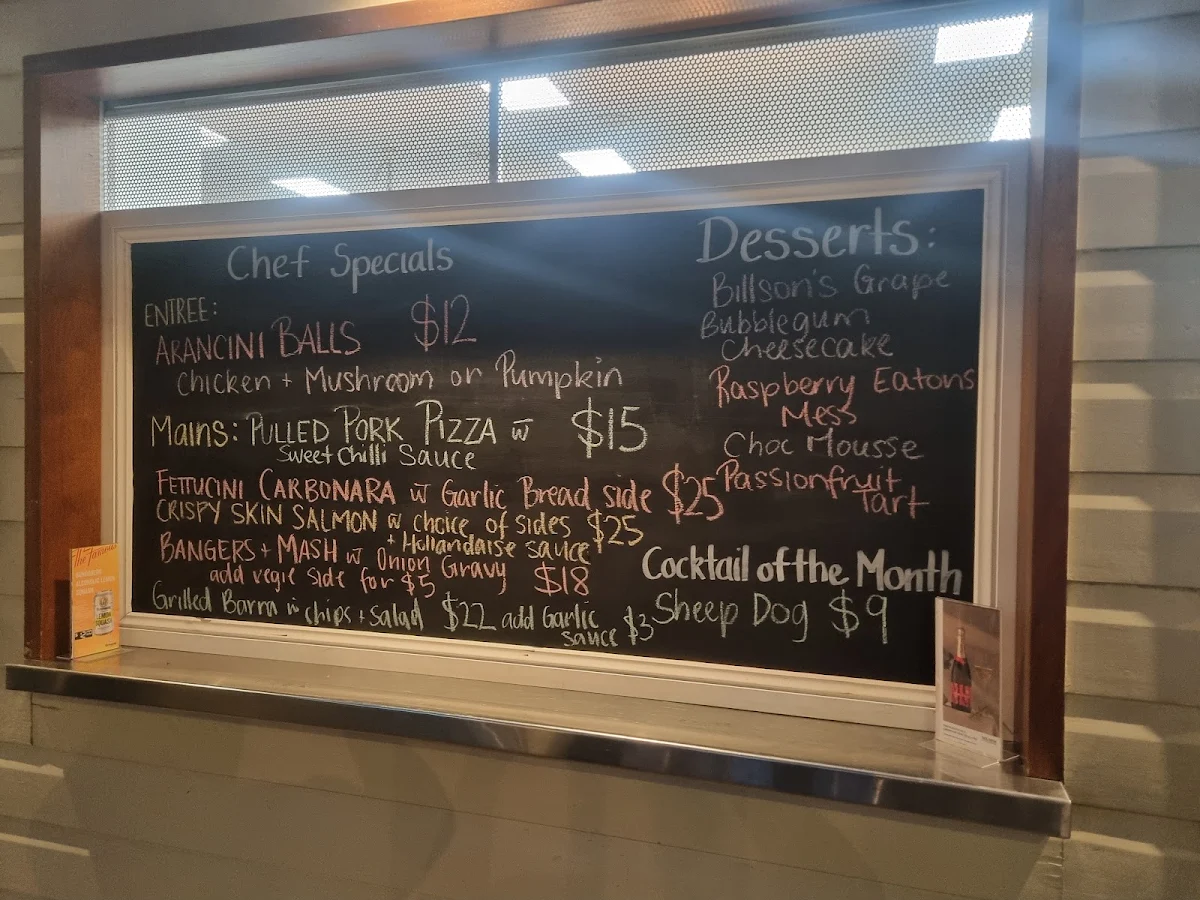 Chef Specials
ENTREE:
ARANCINI BALLS $12
Chicken + Mushroom or Pumpkin
Mains: PULLED PORK PIZZA w $15
Sweet Chilli Sauce
FETTUCINI CARBONARA w Garlic Bread side $25
CRISPY SKIN SALMON w choice of sides $25
+ Hollandaise sauce
BANGERS + MASH w Onion Gravy $18
add vegie side for $5
Grilled Barra w chips + salad $22 add Garlic
sauce $3
Desserts:
Billson's Grape
Bubblegum
Cheesecake
Raspberry Eatons
Mess
Choc Mousse
Passionfruit
Tart
Cocktail of the Month
Sheep Dog $9
the famous